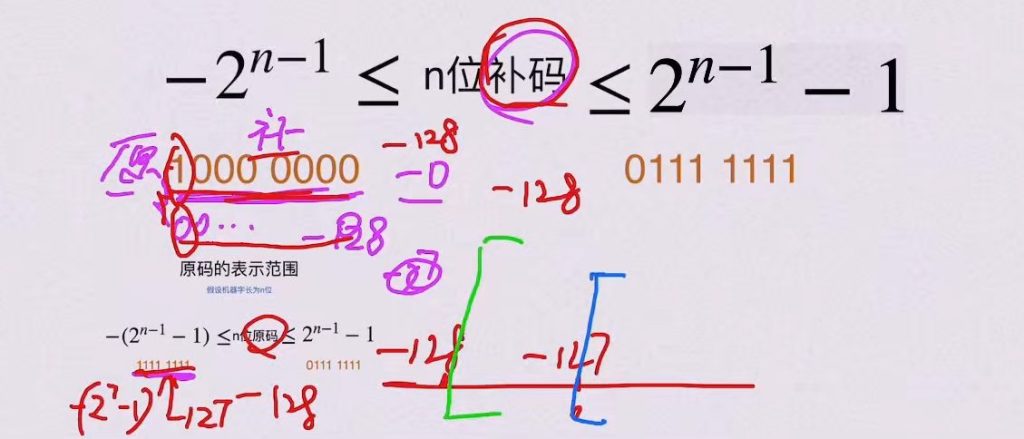 −2ⁿ⁻¹ ≤ n位补码 ≤ 2ⁿ⁻¹ − 1
补
-128
原 1000 0000 -0 0111 1111
-128
00... -128
原码的表示范围
假设机器字长为n位
−(2ⁿ⁻¹ − 1) ≤ n位原码 ≤ 2ⁿ⁻¹ − 1
-128 -127
1111 1111 0111 1111
-(2⁷-1) -127 -128